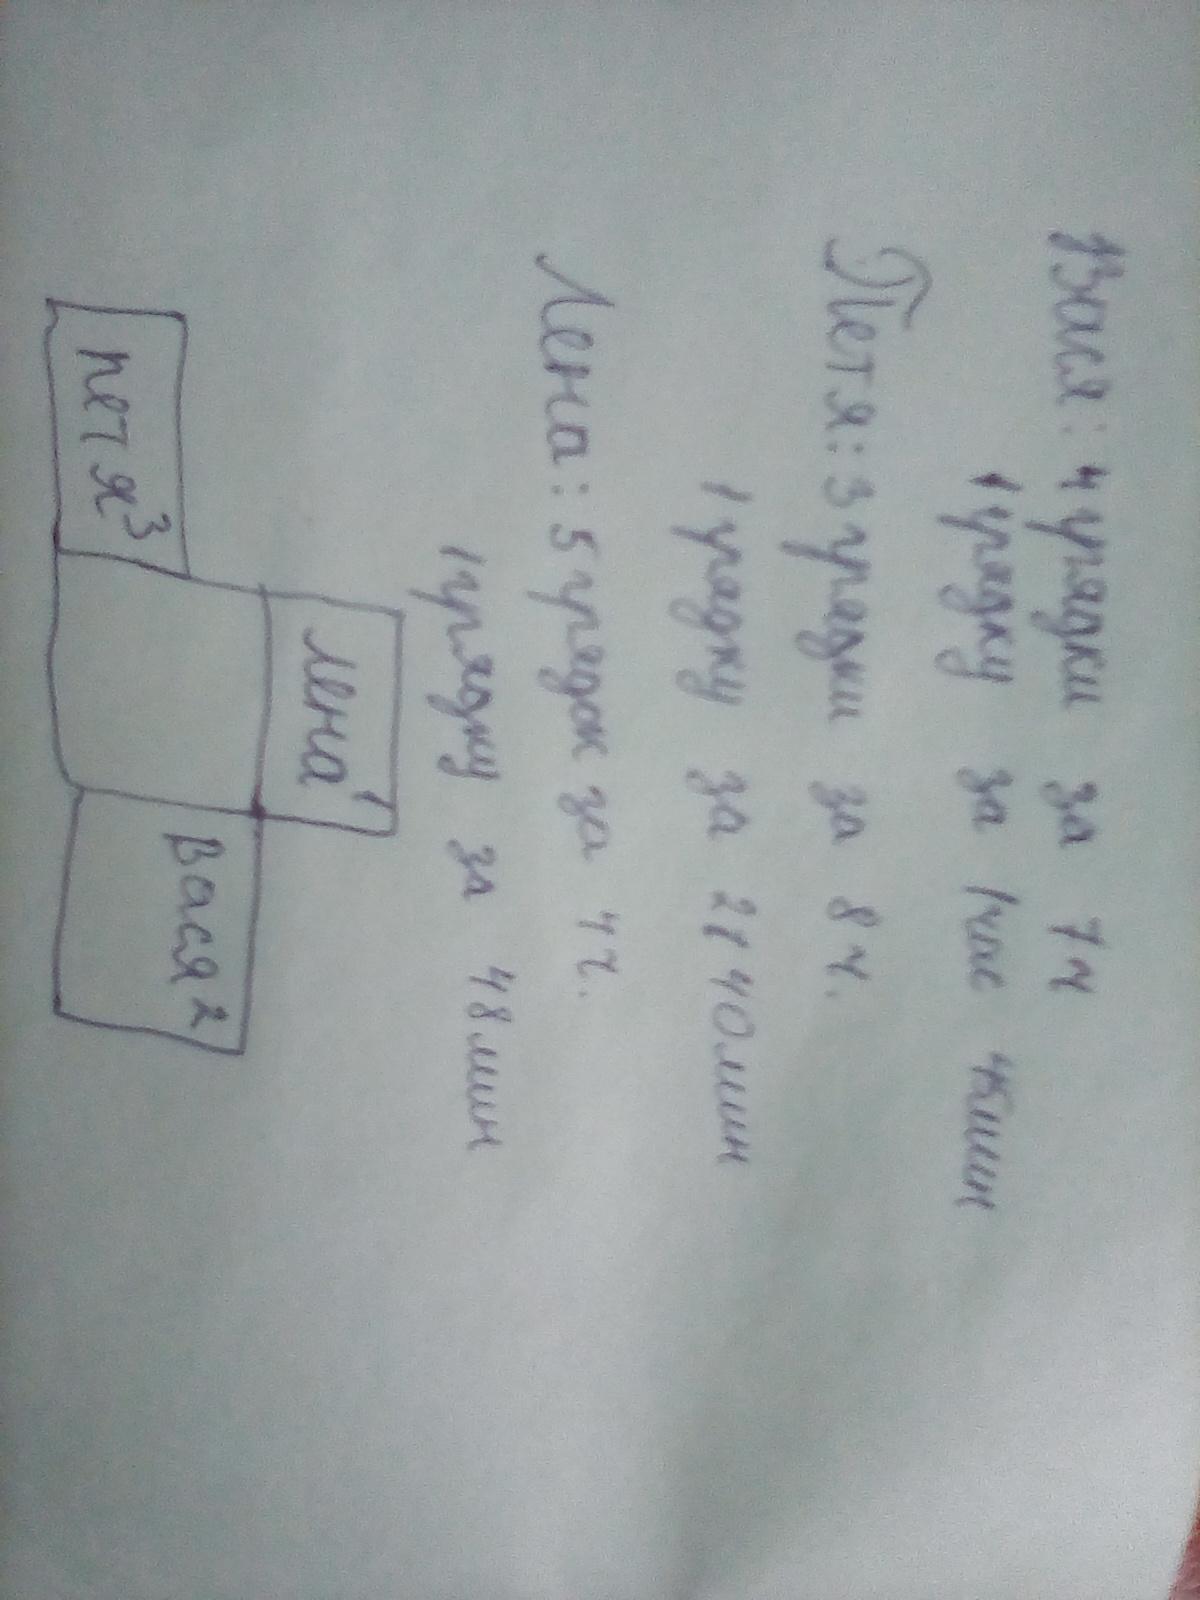 Вася: 4 грядки за 7 ч
1 грядку за 1 час 45мин
Петя: 3 грядки за 8 ч.
1 грядку за 2ч 40мин
Лена: 5 грядок за 4 ч.
1 грядку за 48мин
Лена 1
Вася 2
Петя 3